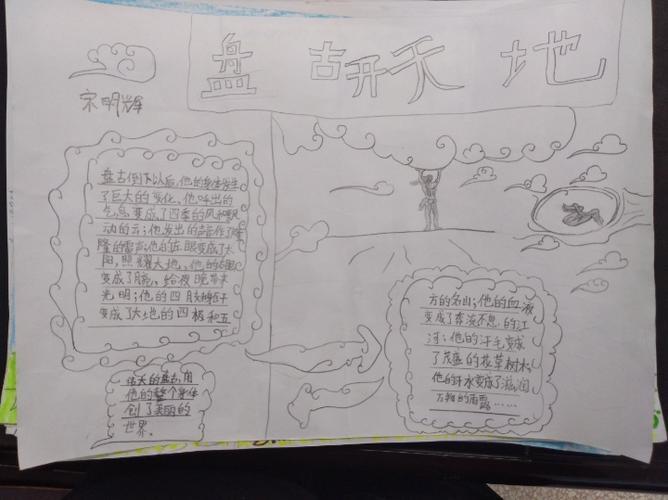 盘古开天地
宋明辉
盘古倒下以后,他的身体发生
了巨大的变化。他呼出的
气息变成了四季的风和飘
动的云;他发出的声音化作了隆
隆的雷声;他的左眼变成了太
阳,照耀大地、他的右眼
变成了月亮、给夜晚带来
光明;他的四肢和躯干
变成了大地的四极和五
方的名山;他的血液
变成了奔流不息的江
河;他的汗毛变成
了茂盛的花草树木;
他的汗水变成了滋润
万物的雨露……
伟大的盘古,用
他的整个身体
创了美丽的
世界.